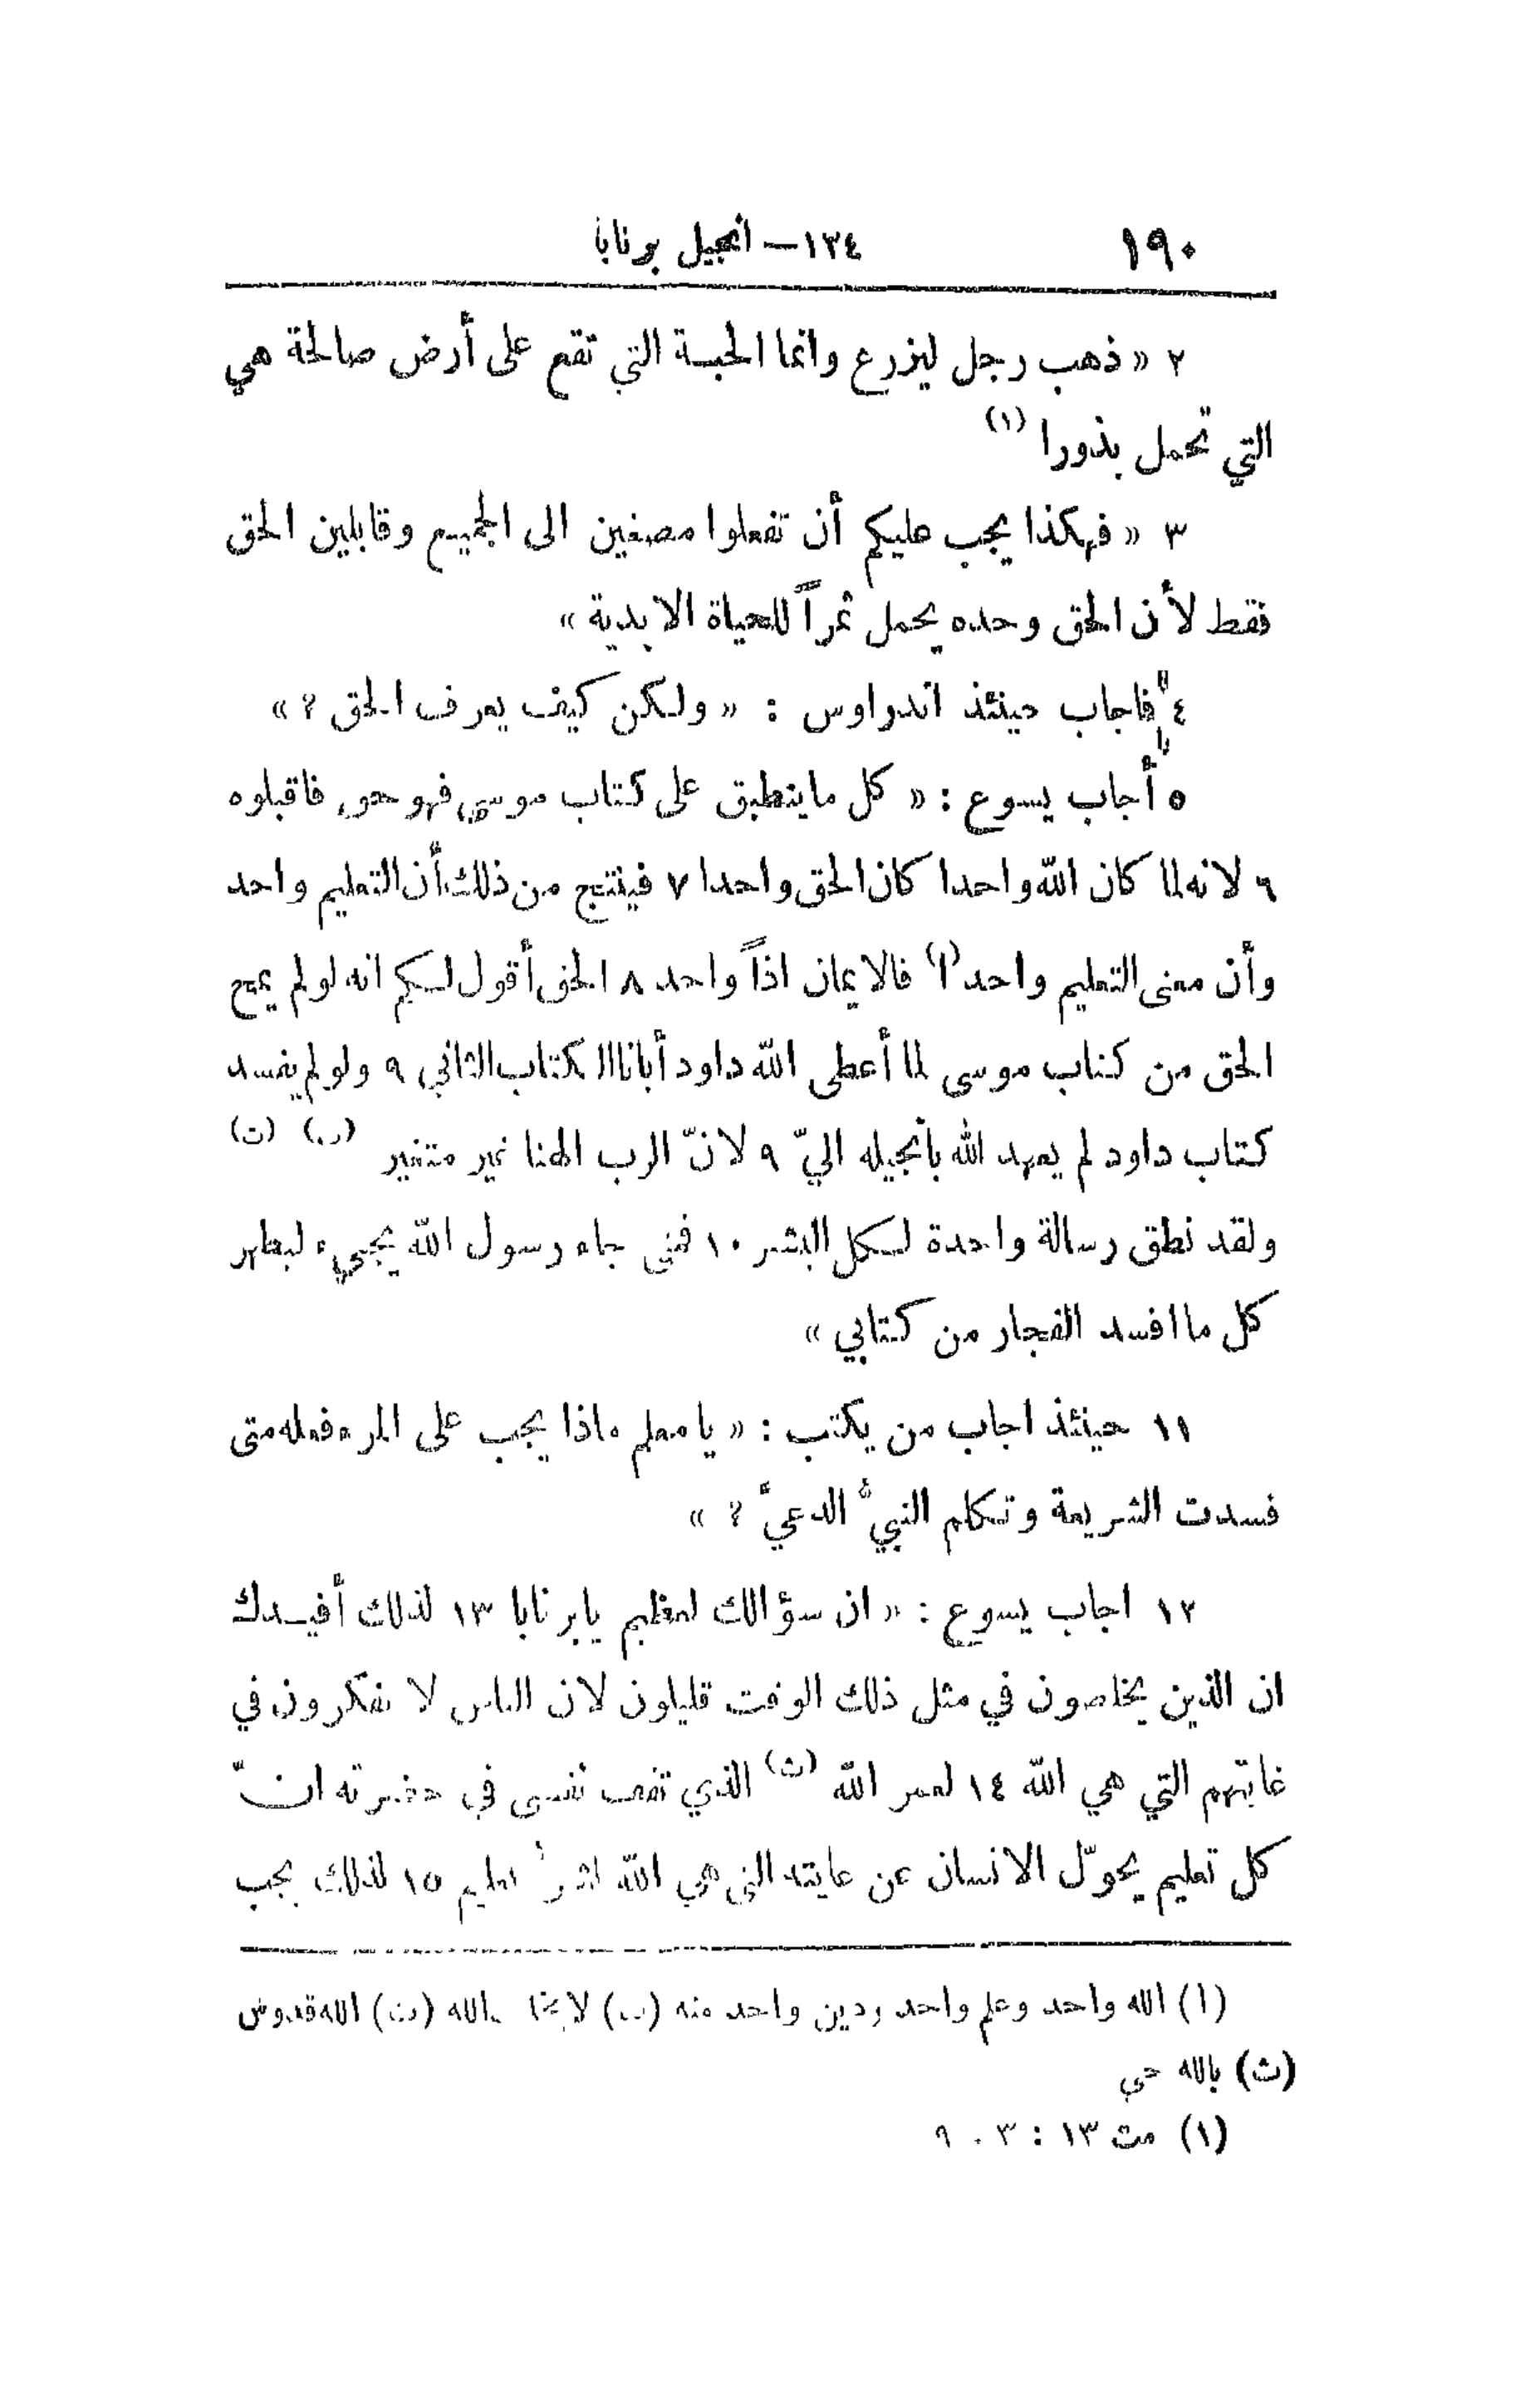 ١٩٠ ١٣٤— انجيل برنابا
٢ « ذهب رجل ليزرع وانما الحبة التي تقع على أرض صالحة هي
التي تحمل بذورا (١)
٣ « فهكذا يجب عليكم أن تفعلوا مصغين الى الجميع وقابلين الحق
فقط لأن الحق وحده يحمل ثمراً للحياة الابدية »
٤ فاجاب حينئذ اندراوس : « ولكن كيف يعرف الحق ? »
٥ أجاب يسوع : « كل ما ينطبق على كتاب موسى فهو حق فاقبلوه
٦ لانه لما كان الله واحدا كان الحق واحدا ٧ فينتج من ذلك أن التعليم واحد
وأن معنى التعليم واحد (ا) فالايمان اذاً واحد ٨ الحق أقول لكم انه لو لم يمح
الحق من كتاب موسى لما أعطى الله داود أبانا الكتاب الثاني ٩ ولو لم يفسد
كتاب داود لم يعهد الله بانجيله اليّ ٩ لانّ الرب الهنا غير متغير (ب) (ت)
ولقد نطق رسالة واحدة لكل البشر ١٠ فمتى جاء رسول الله يجيء ليطهر
كل ما افسد الفجار من كتابي »
١١ حينئذ اجاب من يكتب : « يا معلم ماذا يجب على المرء فعله متى
فسدت الشريعة وتكلم النبيُّ الدعيُّ ? »
١٢ اجاب يسوع : « ان سؤالك لعظيم يا برنابا ١٣ لذلك أفيدك
ان الذين يخلصون في مثل ذلك الوقت قليلون لان الناس لا يفكرون في
غايتهم التي هي الله ١٤ لعمر الله (ث) الذي تقف نفسي في حضرته انّ
كل تعليم يحوّل الانسان عن غايته التي هي الله لشرُّ تعليم ١٥ لذلك يجب
(ا) الله واحد وعلم واحد ودين واحد منه (ب) لا الله (ت) الله قدوس
(ث) بالله حي
(١) مت ١٣ : ٣ . ٩